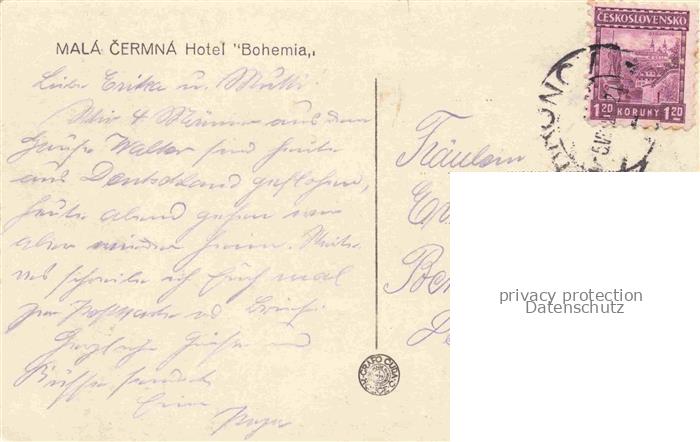 MALÁ ČERMNÁ Hotel "Bohemia„
Liebe Erika u. Mutti!
Wir 4 Männer aus dem
Hause Walter sind heute
aus Deutschland geflohen,
heute abend gehen wir
aber wieder heim. Weite-
res schreibe ich Euch mal
per Postkarte od. Brief.
Herzliche Grüße und
Küsse sendet
Euer
Papa
ČESKOSLOVENSKO
1.20 KORUNY 1.20
Fräulein
GRAFO ČUDA
privacy protection
Datenschutz